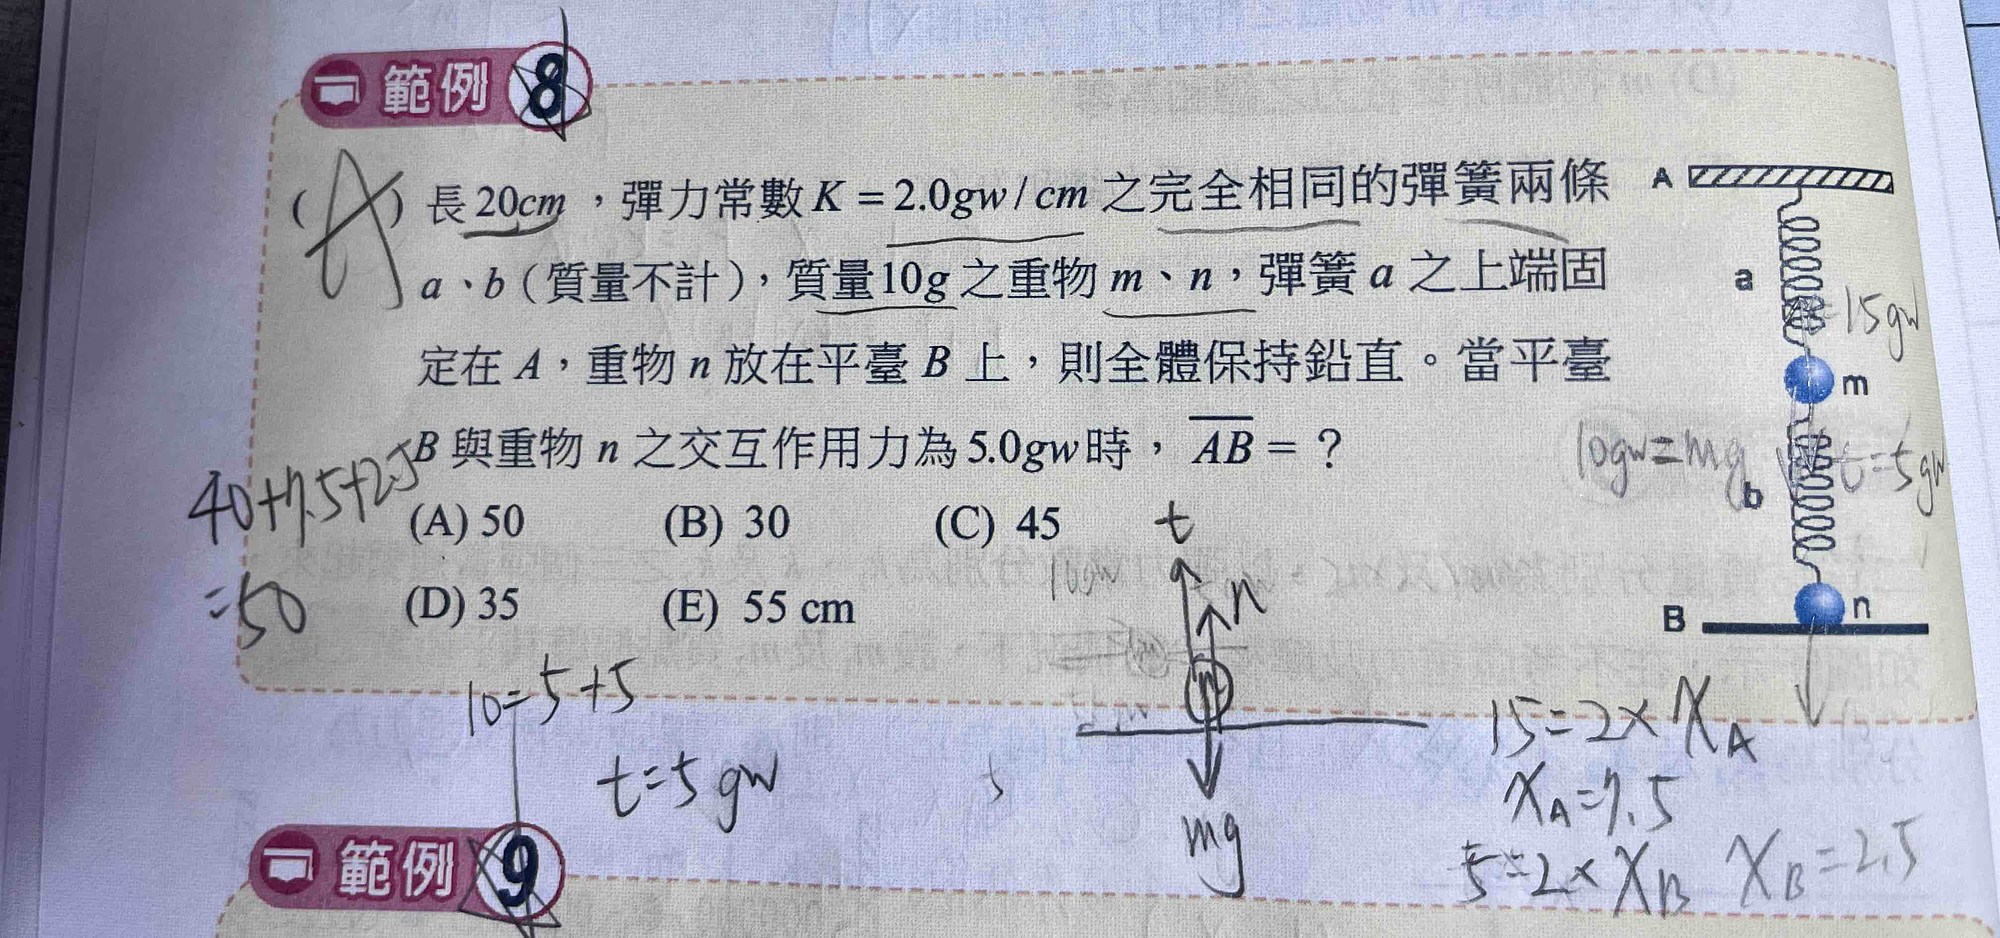 範例 8
(A) 長20cm，彈力常數K=2.0gw/cm之完全相同的彈簧兩條
a、b（質量不計），質量10g之重物m、n，彈簧a之上端固
定在A，重物n放在平臺B上，則全體保持鉛直。當平臺
B與重物n之交互作用力為5.0gw時，AB=？
(A) 50 (B) 30 (C) 45
(D) 35 (E) 55 cm
A
a
15gw
m
10gw=mg
t=5gw
b
B
n
40+7.5+2.5
=50
10=5+5
t=5gw
t
n
n
mg
15=2×XA
XA=7.5
5=2×XB XB=2.5
範例 9